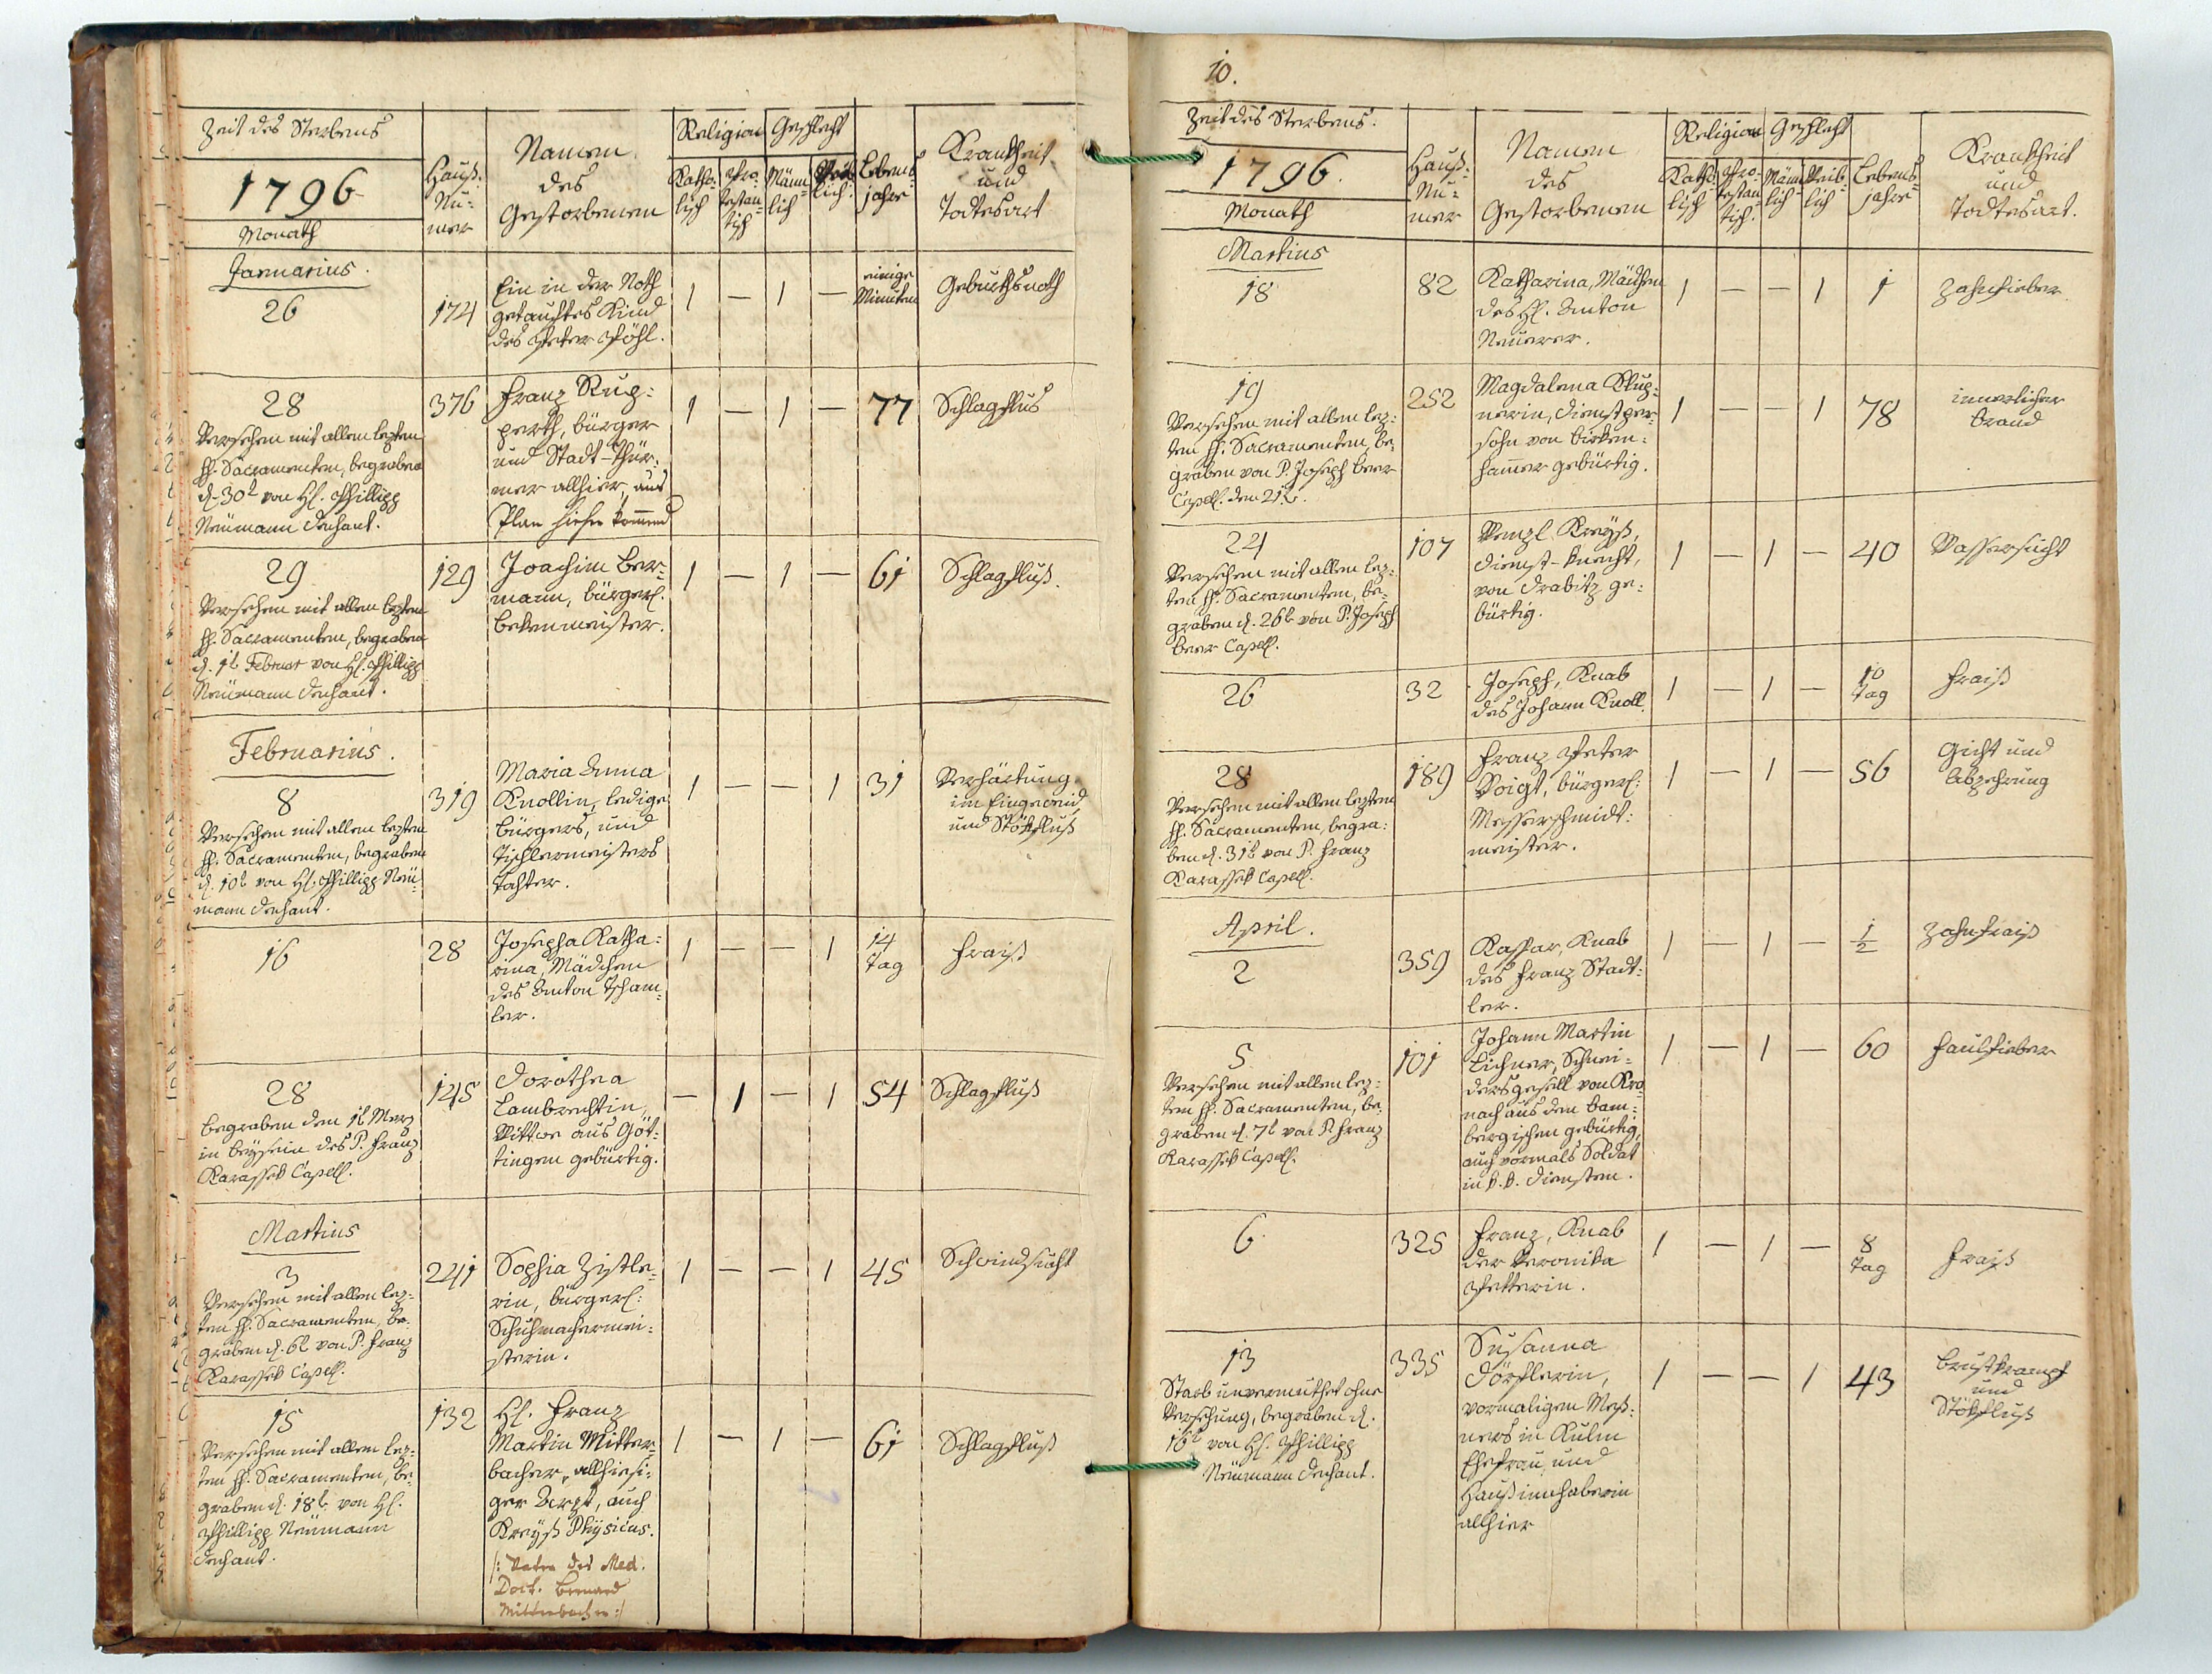 Zeit des Sterbens
1796
Monath
Hauß-
Nu-
mer
Namen
des
Gestorbenen
Religion
Katho-
lisch
Pro-
testan-
tisch
Geschlecht
Männ-
lich
Weib-
lich
Lebens-
jahre
Krankheit
und
Todtesart
Januarius.
26
174
Ein in der Noth
getauftes Kind
des Peter Pöhl.
1 — 1 —
einige
Minuten
Geburthsnoth
28
Versehen mit allen lezten
hh. Sacramenten, begraben
d. 30t von Hl. Phillipp
Neümann Dechant.
376
Franz Rup-
perth, bürger
und Stadt-Thür-
mer allhier, aus
Plan hieher kommend
1 — 1 —
77
Schlagflus
29
Versehen mit allen lezten
hh. Sacramenten, begraben
d. 1t Februar von Hl. Phillipp
Neümann Dechant.
129
Joachim Ber-
mann, bürgerl.
Bekenmeister.
1 — 1 —
61
Schlagfluß.
Februarius.
8
Versehen mit allen lezten
hh. Sacramenten, begraben
d. 10t von Hl. Phillipp Neü-
mann Dechant.
319
Maria Anna
Knollin, ledige
bürgers, und
Tischlermeisters
Tochter.
1 — — 1
31
Verhärtung
im Eingeweid
und Stökfluß
16
28
Josepha Katha-
rina, Mädchen
des Anton Tscham-
ler.
1 — — 1
14
Tag
Fraiß
28
begraben den 1t Merz
in beysein des P. Franz
Karassek Capell.
145
Dorothea
Lambrechtin,
Wittwe aus Göt-
tingen gebürtig.
— 1 — 1
54
Schlagfluß
Martius
3
Versehen mit allen lez-
ten hh. Sacramenten, be-
graben d. 6t von P. Franz
Karassek Capell.
241
Sophia Zistle-
rin, bürgerl:
Schuhmachermei-
sterin.
1 — — 1
45
Schwindsucht
15
Versehen mit allen lez-
ten hh. Sacramenten, be-
graben d. 18t von Hl.
Phillipp Neümann
Dechant.
132
Hl. Franz
Martin Mitter-
bacher, allhiesi-
ger Arzt, auch
Kreyß Physicus.
/: Vater des Med.
Doct. Bernard
Mitterbacher :/
1 — 1 —
61
Schlagfluß
10.
Zeit des Sterbens.
1796.
Monath
Hauß-
Nu-
mer
Namen
des
Gestorbenen
Religion
Katho-
lisch
Pro-
testan-
tisch.
Geschlecht
Männ-
lich
Weib-
lich
Lebens-
jahre
Krankheit
und
Todtesart.
Martius
18
82
Katharina, Mädchen
des Hl. Anton
Neuerer.
1 — — 1
1
Zahnfieber.
19
Versehen mit allen lez-
ten hh. Sacramenten, be-
graben von P. Joseph Beer
Capell. den 21t.
252
Magdalena Klup-
nerin, Dienstper-
sohn von Birken-
hamer gebürtig.
1 — — 1
78
innerlicher
Brand
24
Versehen mit allen lez-
ten hh. Sacramenten, be-
graben d. 26t von P. Joseph
Beer Capell.
107
Wenzl Kreyß,
Dienst-knecht,
von Drabitz ge-
bürtig.
1 — 1 —
40
Wassersucht
26
32
Joseph, Knab
des Johann Knoll.
1 — 1 —
10
Tag
Fraiß
28
Versehen mit allen lezten
hh. Sacramenten, begra-
ben d. 31t von P. Franz
Karassek Capell.
189
Franz Peter
Voigt, bürgerl:
Messerschmidt-
meister.
1 — 1 —
56
Gicht und
Abzehrung
April.
2
359
Kaspar, Knab
des Franz Stadt-
ler.
1 — 1 —
1/2
Zahnfraiß
5
Versehen mit allen lez-
ten hh. Sacramenten, be-
graben d. 7t von P. Franz
Karassek Capell.
101
Johann Martin
Eichner, Schnei-
dersgesell von Kro-
nach aus dem Bam-
bergischen gebürtig,
auch vormals Soldat
in k.k. Diensten.
1 — 1 —
60
Faulfieber
6
325
Franz, Knab
der Veronika
Petterin.
1 — 1 —
8
Tag
Fraiß
13
Starb unvermuthet ohne
Versehung, begraben d.
16t von Hl. Phillipp
Neümann Dechant.
335
Susanna
Dörflerin,
vormaligen Meß-
ners in Kulm
Ehefrau, und
Haußinnhaberin
allhier
1 — — 1
43
Brustkrampf
und
Stökfluß